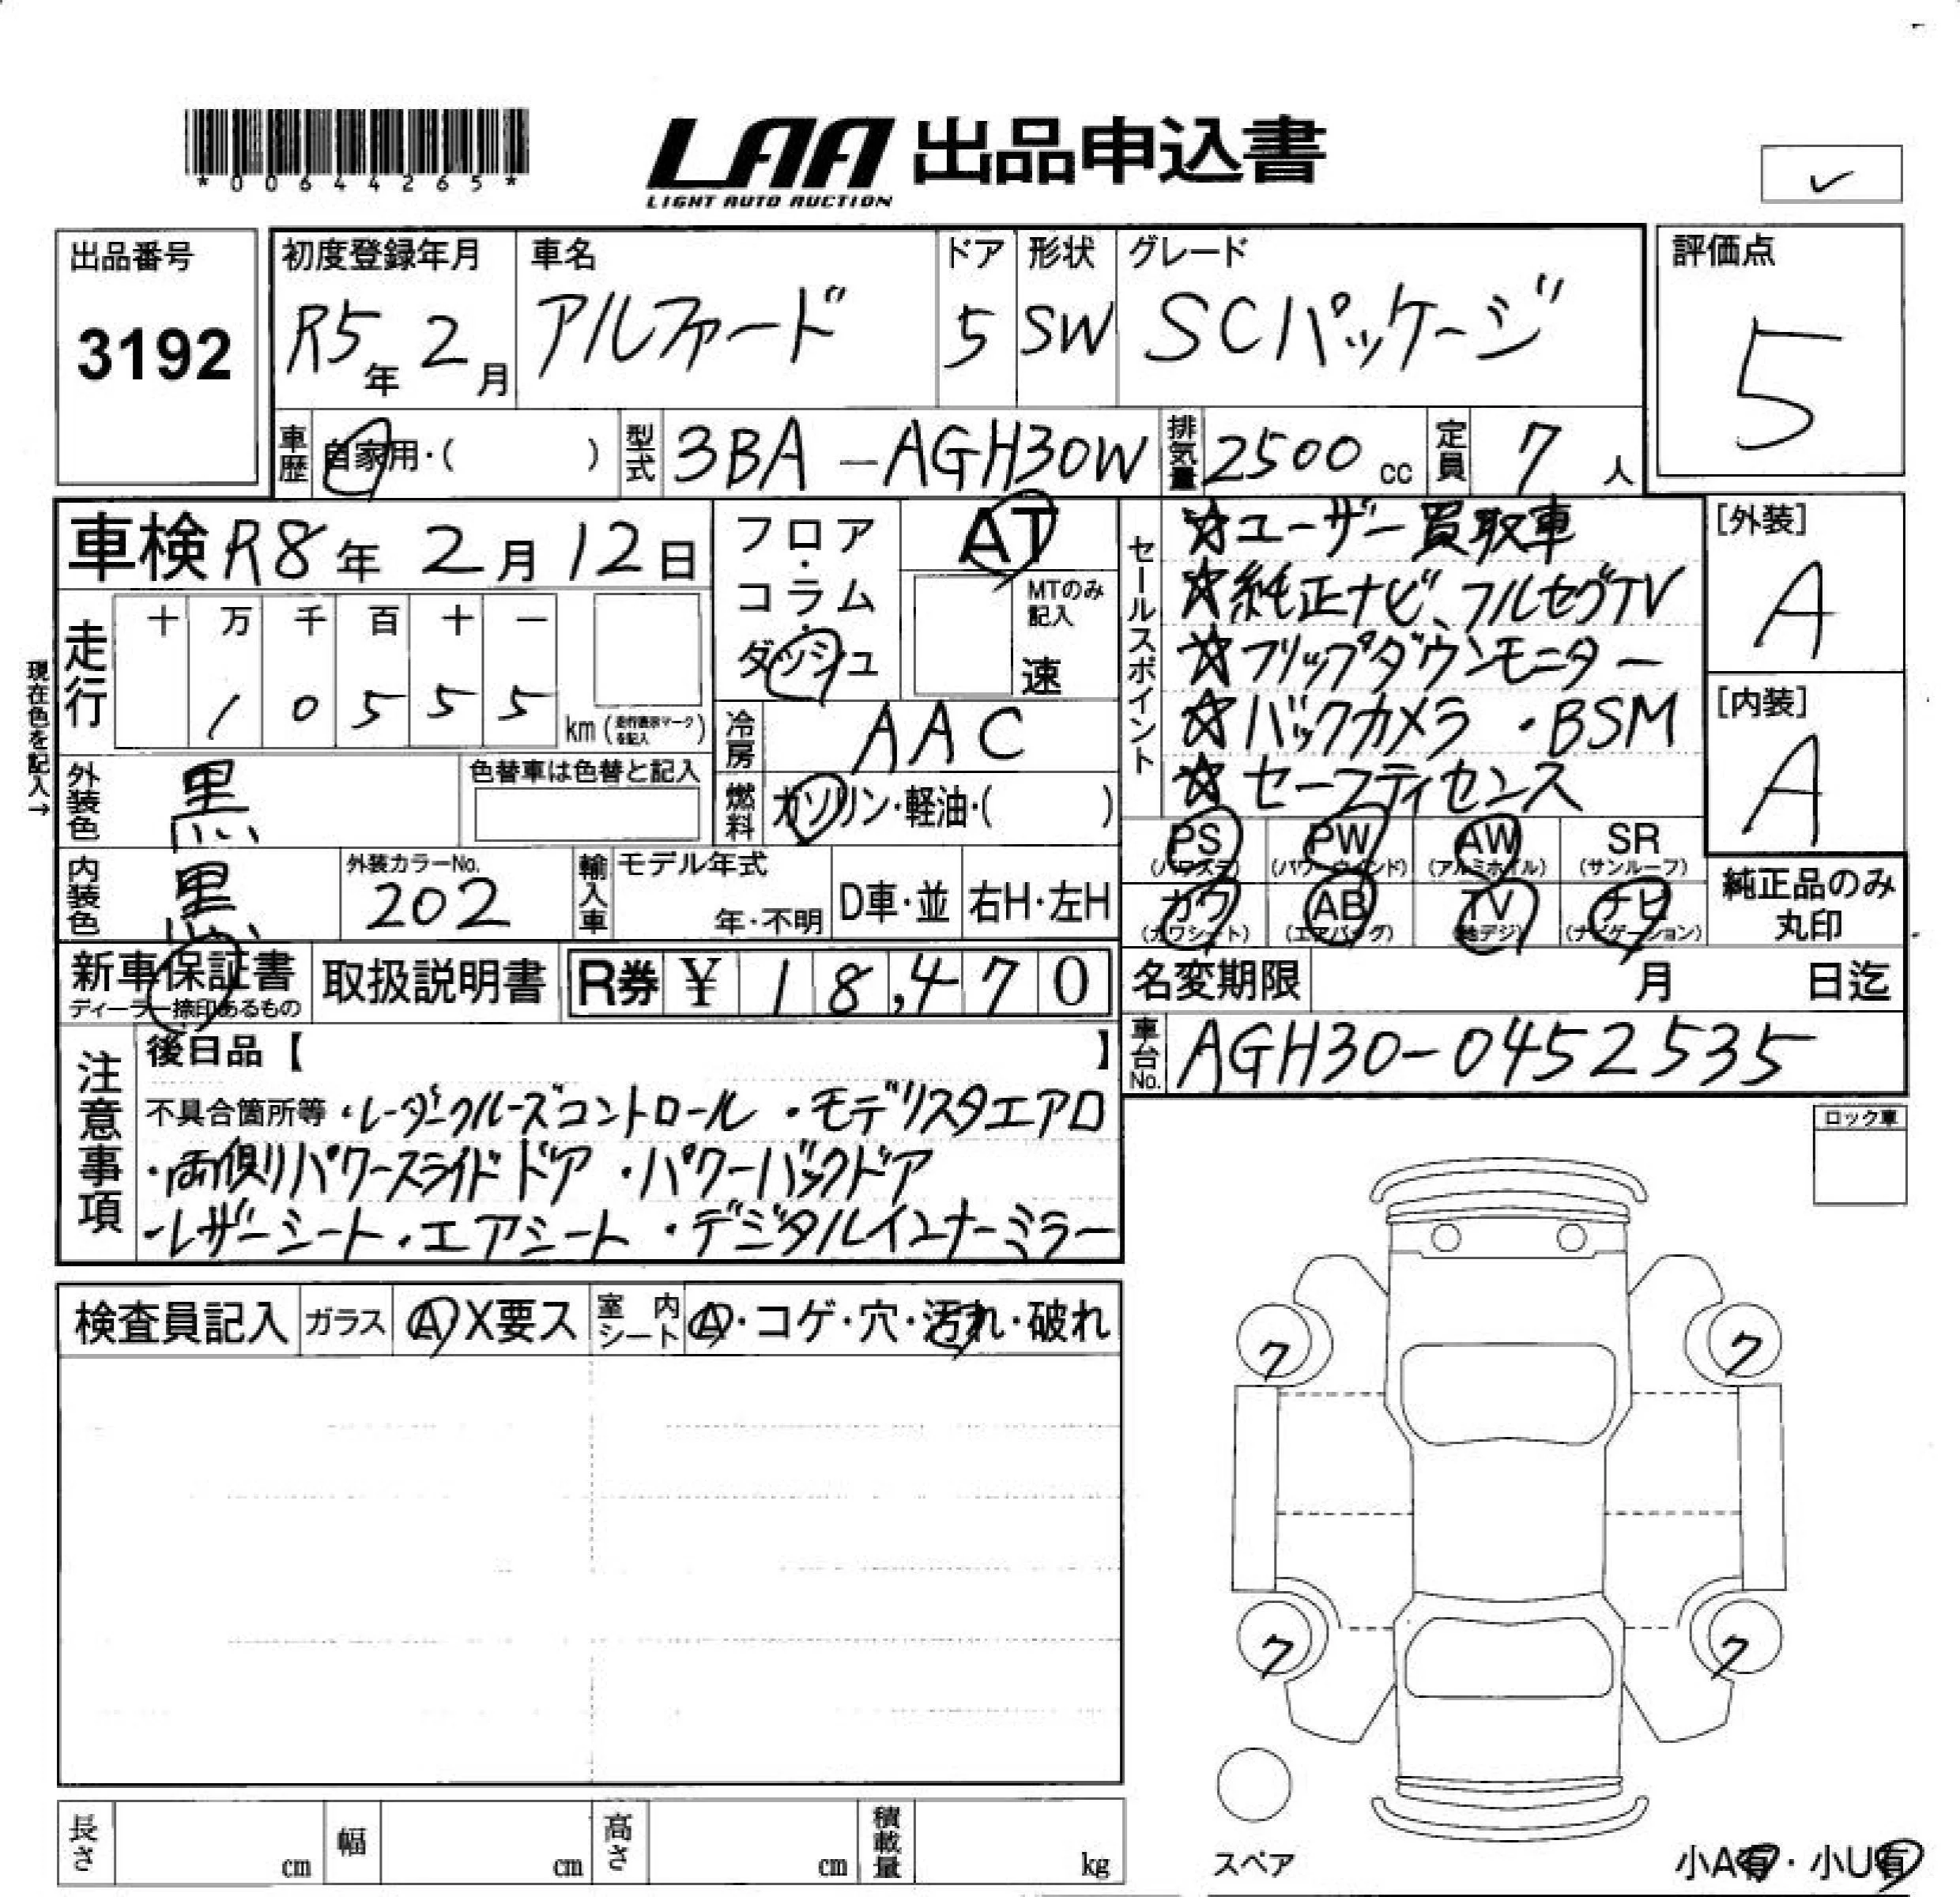 *00644265*
LAA 出品申込書
LIGHT AUTO AUCTION
✓
出品番号
3192
初度登録年月
R5年2月
車名
アルファード
ドア
5
形状
SW
グレード
SCパッケージ
評価点
5
車歴 自家用・( )
型式 3BA-AGH30W
排気量 2500cc
定員 7人
車検 R8年2月12日
フロア・コラム・ダッシュ
AT
MTのみ記入
速
セールスポイント
☆ユーザー買取車
☆純正ナビ、フルセグTV
☆フリップダウンモニター
☆バックカメラ・BSM
☆セーフティセンス
[外装]
A
[内装]
A
現在色を記入→
走行
十 万 千 百 十 一
1 0 5 5 5
km(走行表示マークを記入)
冷房 AAC
燃料 ガソリン・軽油・( )
外装色 黒
色替車は色替と記入
内装色 黒
外装カラーNo.
202
輸入車
モデル年式
年・不明
D車・並
右H・左H
PS
(パワステ)
PW
(パワーウィンド)
AW
(アルミホイル)
SR
(サンルーフ)
カワ
(カワシート)
AB
(エアバッグ)
TV
(地デジ)
ナビ
(ナビゲーション)
純正品のみ
丸印
新車保証書
ディーラー捺印あるもの
取扱説明書
R券 ¥18,470
名変期限 月 日迄
車台No. AGH30-0452535
注意事項
後日品【 】
不具合箇所等・レーダークルーズコントロール・モデリスタエアロ
・両側パワースライドドア・パワーバックドア
・レザーシート・エアシート・デジタルインナーミラー
ロック車
検査員記入
ガラス
A X要ス
室内シート
A・コゲ・穴・汚れ・破れ
7
7
7
7
スペア
小A有・小U有
長さ cm
幅 cm
高さ cm
積載量 kg